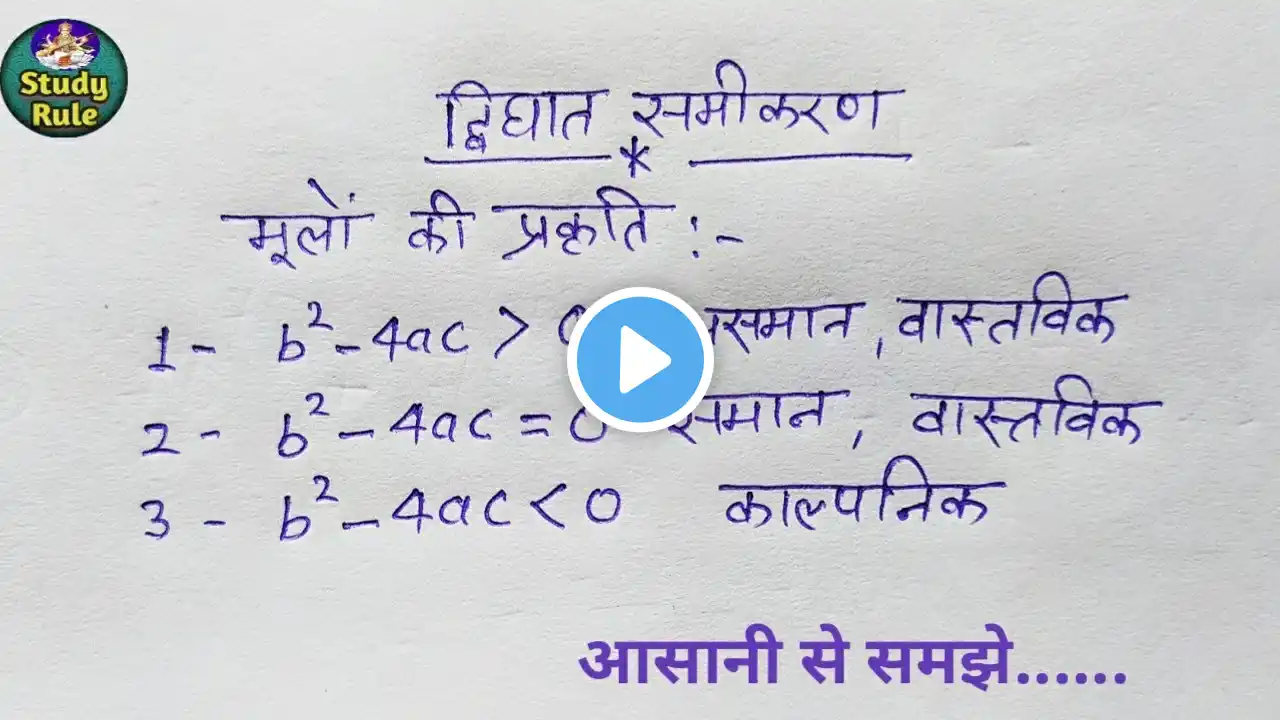 Study
Rule
द्विघात समीकरण
*
मूलों की प्रकृति :-
1 - b² - 4ac > वास्तविक
2 - b² - 4ac = 0 समान, वास्तविक
3 - b² - 4ac < 0 काल्पनिक
आसानी से समझे......